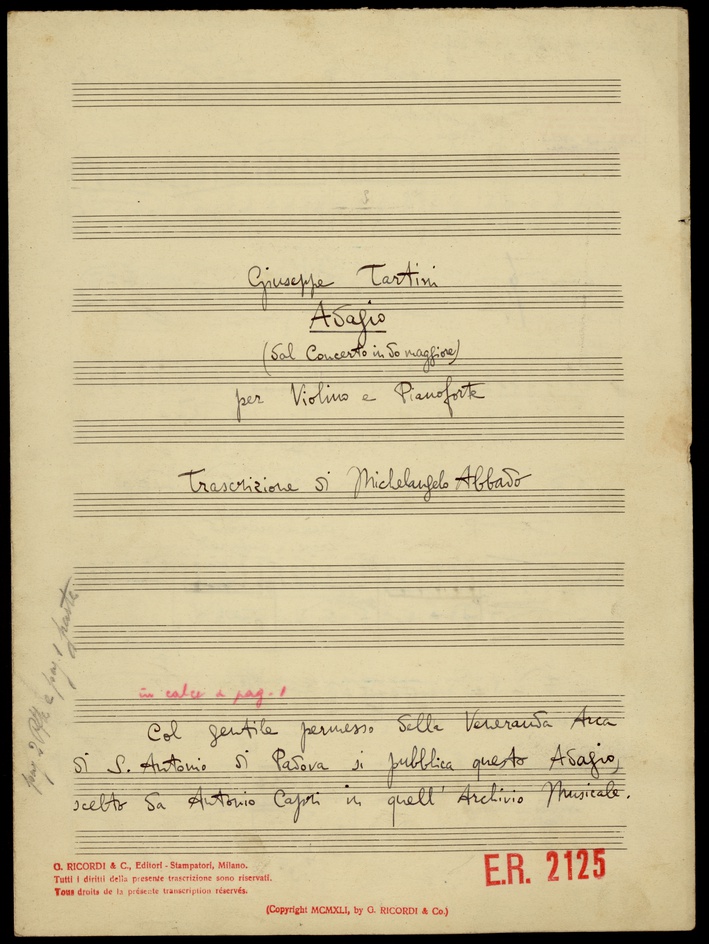 Giuseppe Tartini
Adagio
(dal Concerto in do maggiore)
per Violino e Pianoforte
Trascrizione di Michelangelo Abbado
in calce a pag. 1
Col gentile permesso della Veneranda Arca
di S. Antonio di Padova si pubblica questo Adagio,
scelto da Antonio Capri in quell' Archivio Musicale.
G. RICORDI & C., Editori - Stampatori, Milano.
Tutti i diritti della presente trascrizione sono riservati.
Tous droits de la présente transcription réservés.
E.R. 2125
(Copyright MCMXLI, by G. RICORDI & Co.)